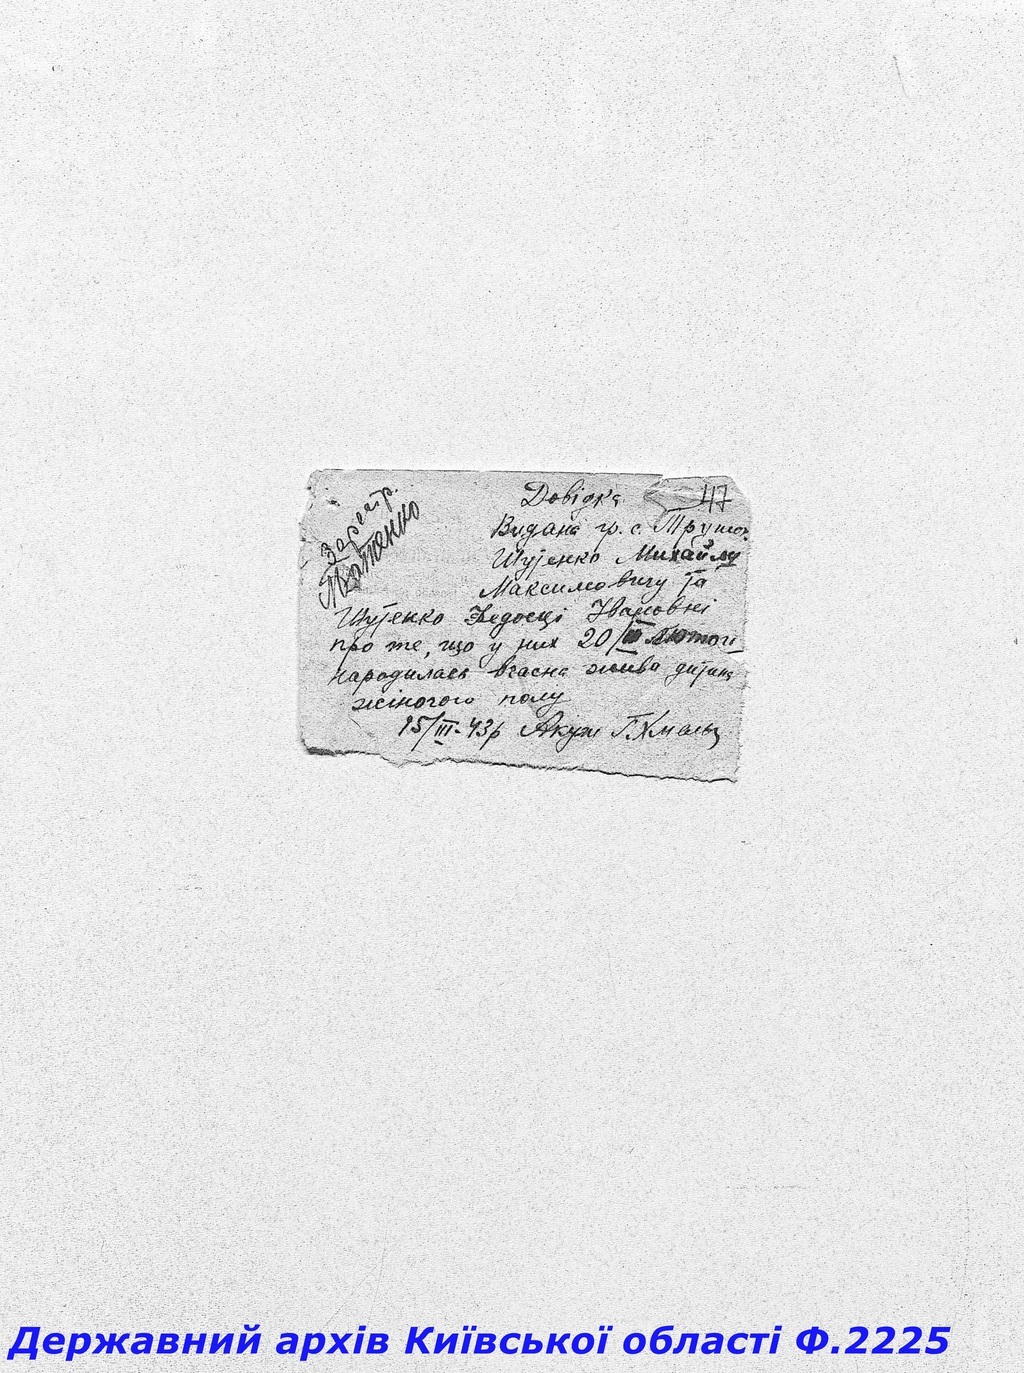 Зареєтр.
Довідка 47
Видана гр. с.
Шутенко Михайлу
Максимовичу та
Шутенко Федосці Івановні
про те, що у них 20/III Лютого
народилась вчасна жива дитина
жіночого полу
15/III-43р Акуш Г. Хмель
Державний архів Київської області Ф.2225